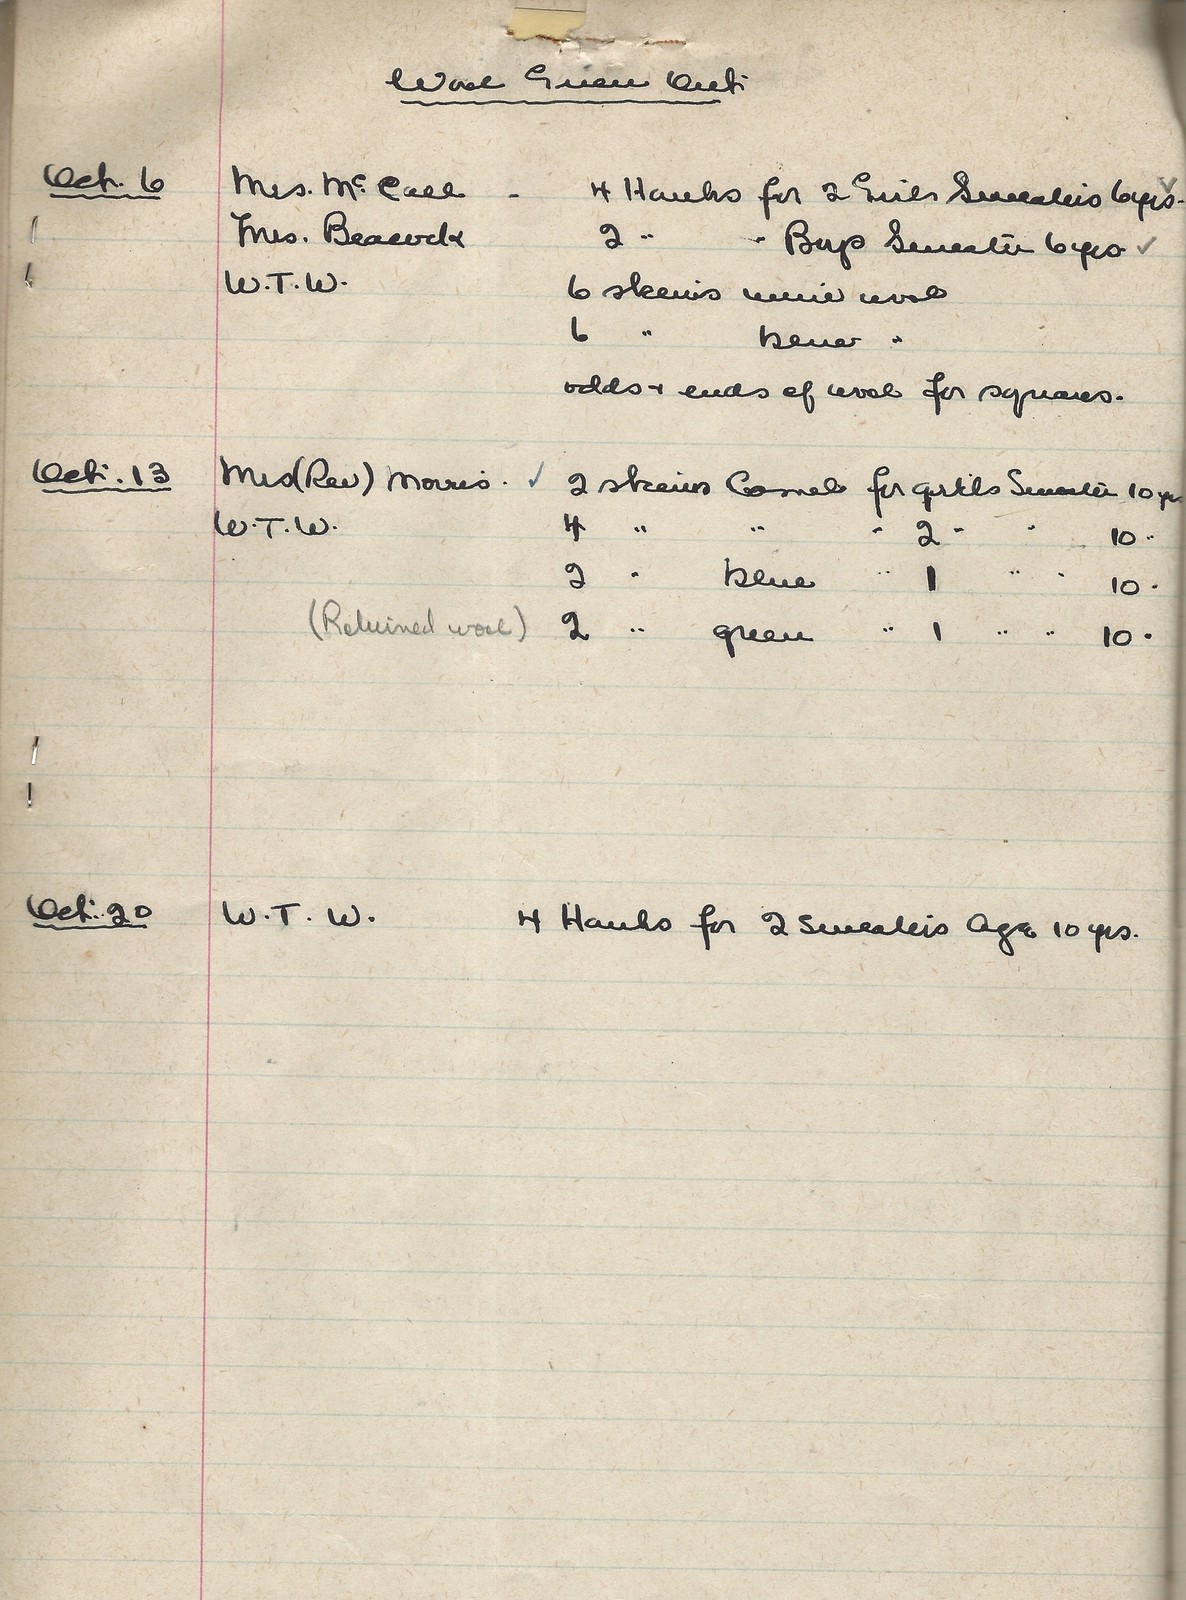 Wool Given Out
Oct. 6 Mrs. McCall - 4 Hanks for 2 Girls Sweaters 6yrs. ✓
Mrs. Beacock 2 " " Boys Sweater 6 yrs. ✓
W.T.W. 6 skeins wool
6 " blue "
odds + ends of wool for squares.
Oct. 13 Mrs (Rev) Morris. ✓ 2 skeins for girls Sweater 10 yrs
W.T.W. 4 " " " 2 " " 10 "
2 " blue " 1 " " 10 "
(Returned wool) 2 " green " 1 " " 10 "
Oct. 20 W.T.W. 4 Hanks for 2 Sweaters Age 10 yrs.